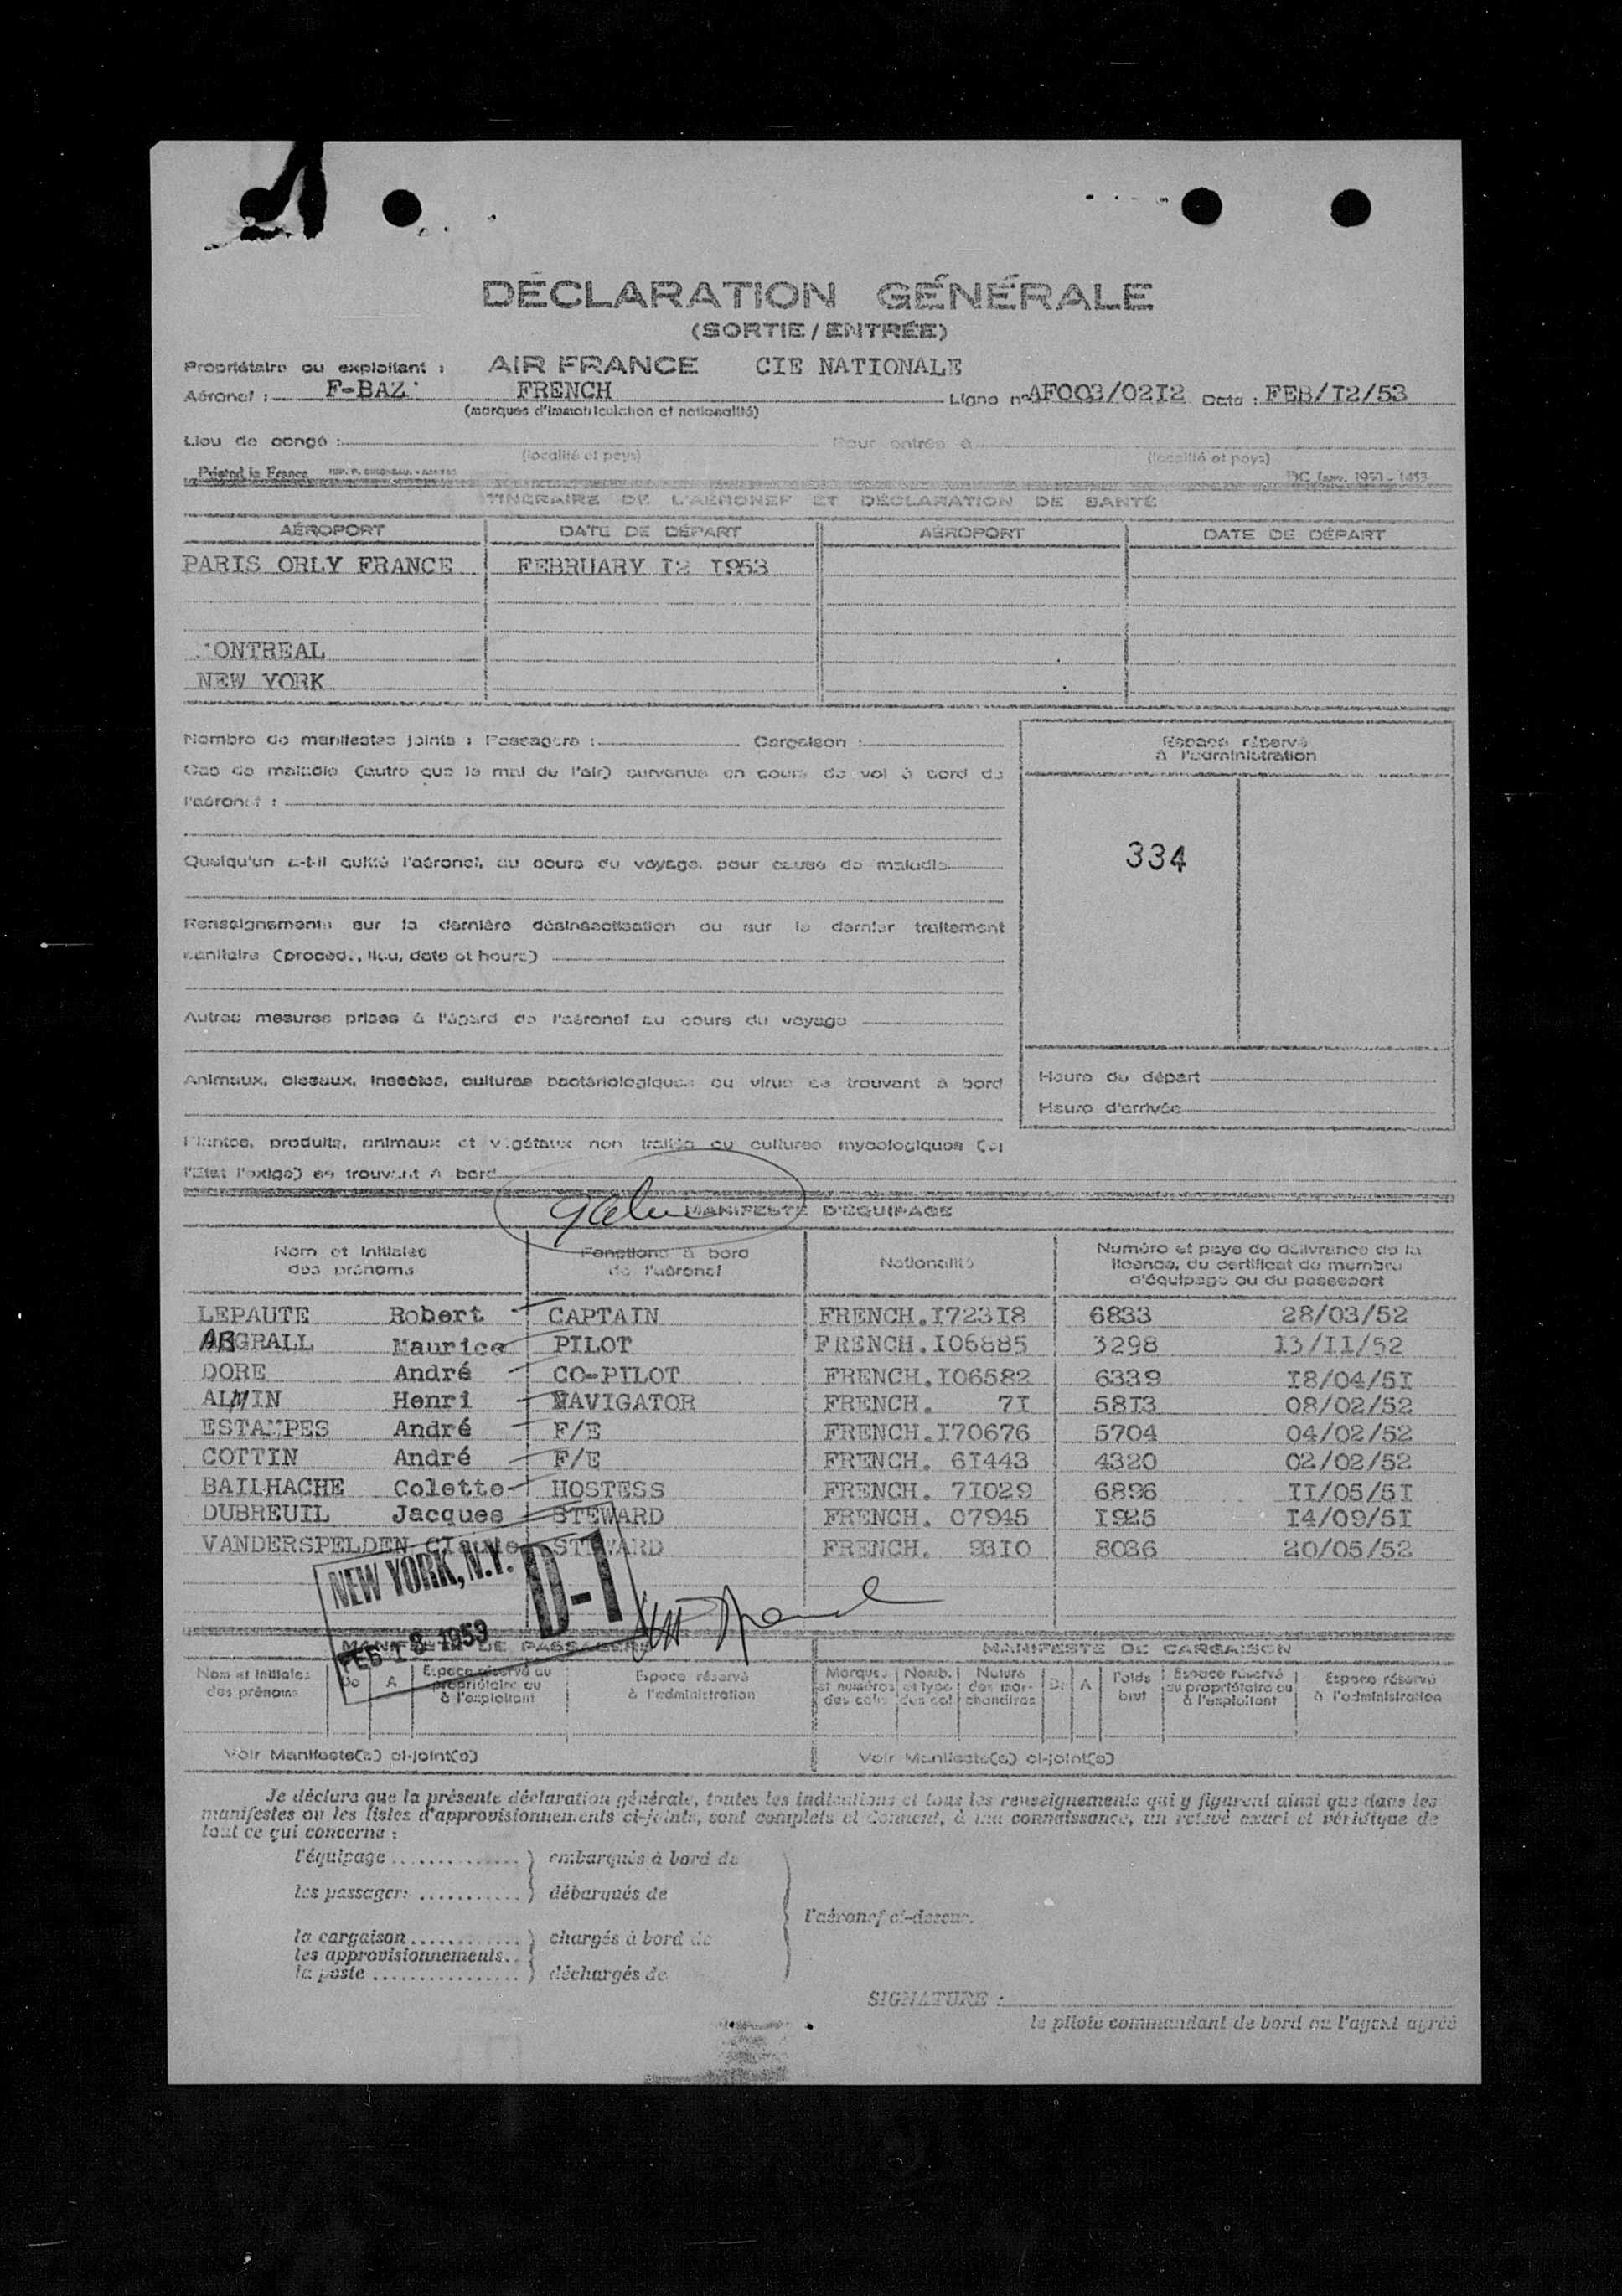 DÉCLARATION GÉNÉRALE
(SORTIE / ENTRÉE)
Propriétaire ou exploitant : AIR FRANCE CIE NATIONALE
Aéronef : F-BAZ FRENCH Ligne n° AF003/02I2 Date : FEB/I2/53
(marques d'immatriculation et nationalité)
Lieu de congé : Pour entrée à
(localité et pays) (localité et pays)
Printed in France
ITINÉRAIRE DE L'AÉRONEF ET DÉCLARATION DE SANTÉ
AÉROPORT DATE DE DÉPART AÉROPORT DATE DE DÉPART
PARIS ORLY FRANCE FEBRUARY I2 I953
MONTREAL
NEW YORK
Nombre de manifestes joints : Passagers : Cargaison :
Espace réservé
à l'administration
Cas de maladie (autre que le mal de l'air) survenus en cours de vol à bord de
l'aéronef :
334
Quelqu'un a-t-il quitté l'aéronef, au cours du voyage, pour cause de maladie
Renseignements sur la dernière désinsectisation ou sur le dernier traitement
sanitaire (procédé, lieu, date et heure)
Autres mesures prises à l'égard de l'aéronef au cours du voyage
Animaux, oiseaux, insectes, cultures bactériologiques ou virus se trouvant à bord
Heure du départ
Heure d'arrivée
Plantes, produits, animaux et végétaux non traités ou cultures mycologiques (si
l'Etat l'exige) se trouvant à bord
MANIFESTE D'ÉQUIPAGE
Nom et initiales des prénoms
Fonctions à bord de l'aéronef
Nationalité
Numéro et pays de délivrance de la licence, du certificat de membre d'équipage ou du passeport
LEPAUTE Robert CAPTAIN FRENCH.I723I8 6833 28/03/52
ABGRALL Maurice PILOT FRENCH.I06885 3298 I3/II/52
DORE André CO-PILOT FRENCH.I06582 6339 I8/04/5I
ALMIN Henri NAVIGATOR FRENCH. 7I 58I3 08/02/52
ESTAMPES André F/E FRENCH.I70676 5704 04/02/52
COTTIN André F/E FRENCH. 6I443 4320 02/02/52
BAILHACHE Colette HOSTESS FRENCH. 7I029 6896 II/05/5I
DUBREUIL Jacques STEWARD FRENCH. 07945 I925 I4/09/5I
VANDERSPELDEN Claude STEWARD FRENCH. 93I0 8036 20/05/52
NEW YORK, N.Y. D-1
FEB 13 1959
MANIFESTE DE PASSAGERS MANIFESTE DE CARGAISON
Nom et initiales des prénoms
De
A
Espace réservé au propriétaire ou à l'exploitant
Espace réservé à l'administration
Marques et numéros des colis
Nomb. et type des col.
Nature des marchandises
De
A
Poids brut
Espace réservé au propriétaire ou à l'exploitant
Espace réservé à l'administration
Voir Manifeste(s) ci-joint(s) Voir Manifeste(s) ci-joint(s)
Je déclare que la présente déclaration générale, toutes les indications et tous les renseignements qui y figurent ainsi que dans les
manifestes ou les listes d'approvisionnements ci-joints, sont complets et donnent, à ma connaissance, un relevé exact et véridique de
tout ce qui concerne :
l'équipage .............. ) embarqués à bord de
les passagers ........... ) débarqués de
l'aéronef ci-dessus.
la cargaison ............ ) chargés à bord de
les approvisionnements..
la poste ................ ) déchargés de
SIGNATURE :
le pilote commandant de bord ou l'agent agréé